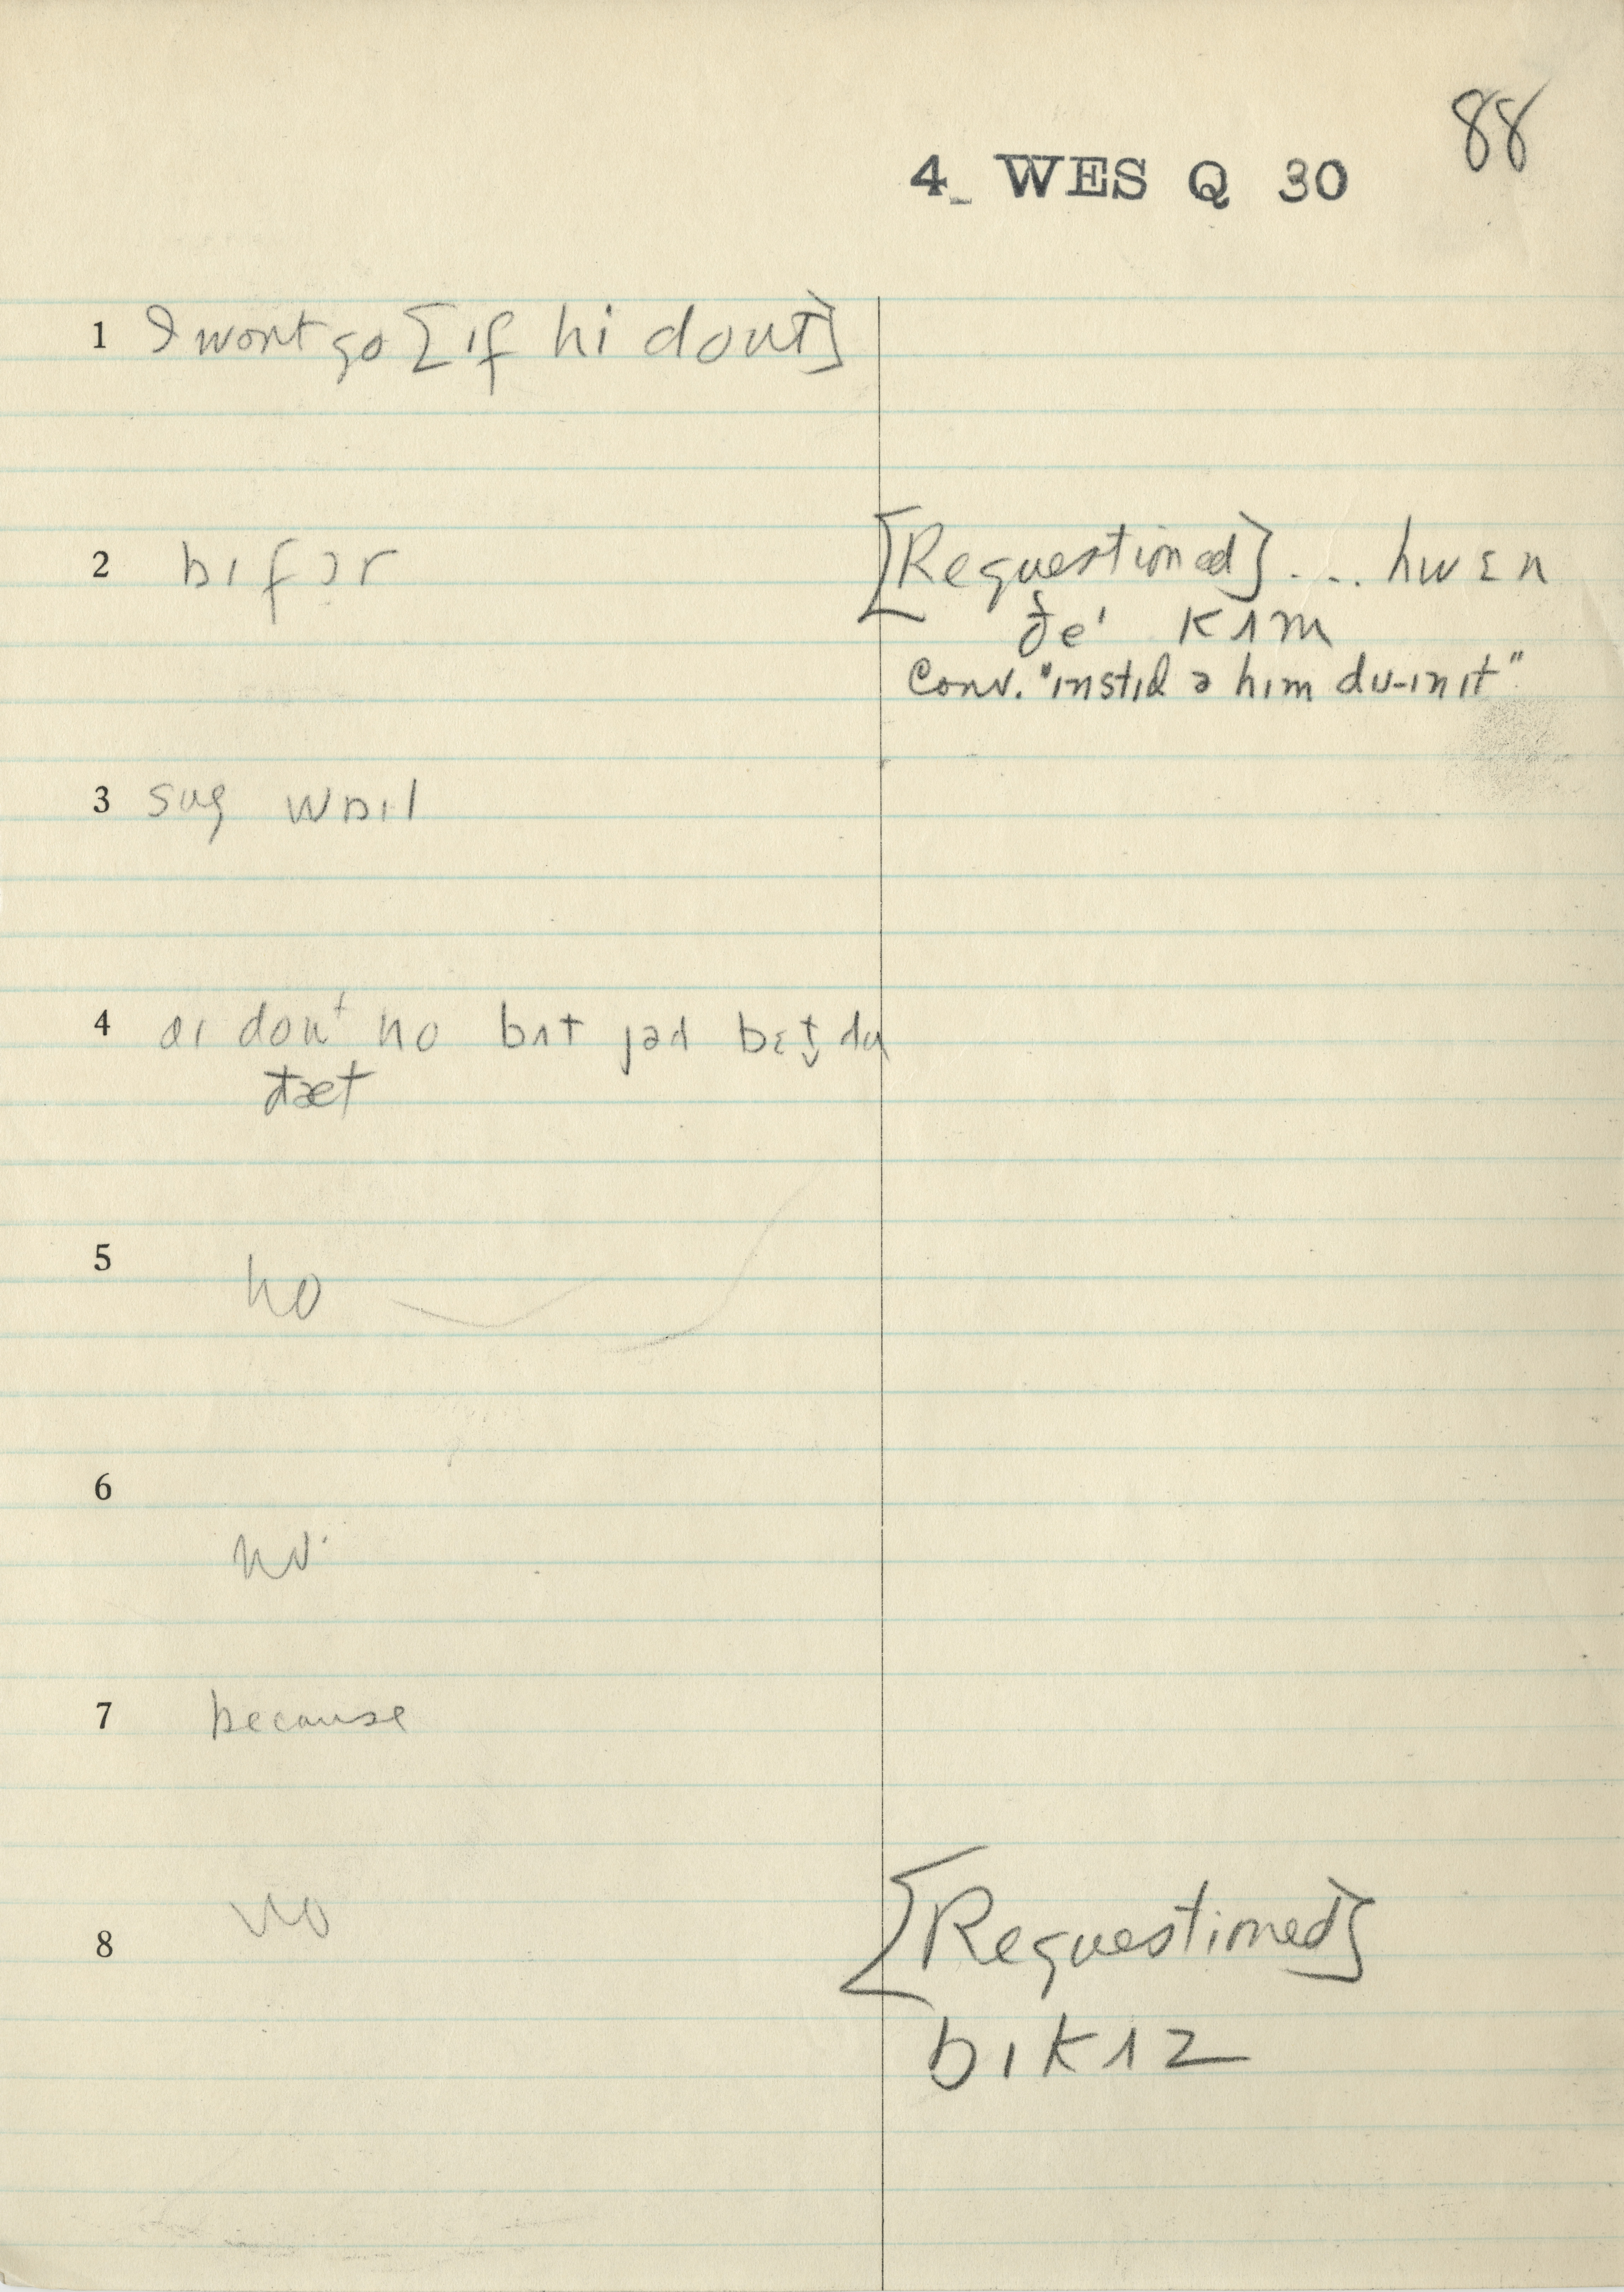 88
4_ WES Q 30
1 I wont go [ɪf hi dount]
2 bɪfɔr
[Requestioned] ... hwɛn
ðeˈ kʌm
Conv. "ɪnstɪd ə hɪm du-ɪn ɪt"
3 wɒɪl
4 aɪ dont no bʌt jəd bɛt̬ du
ðæt
5 no
6 no
7 because
8 no
[Requestioned]
bɪkʌz